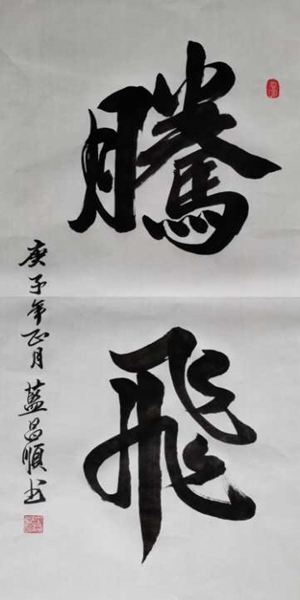 騰飛
庚子年正月藍昌順书